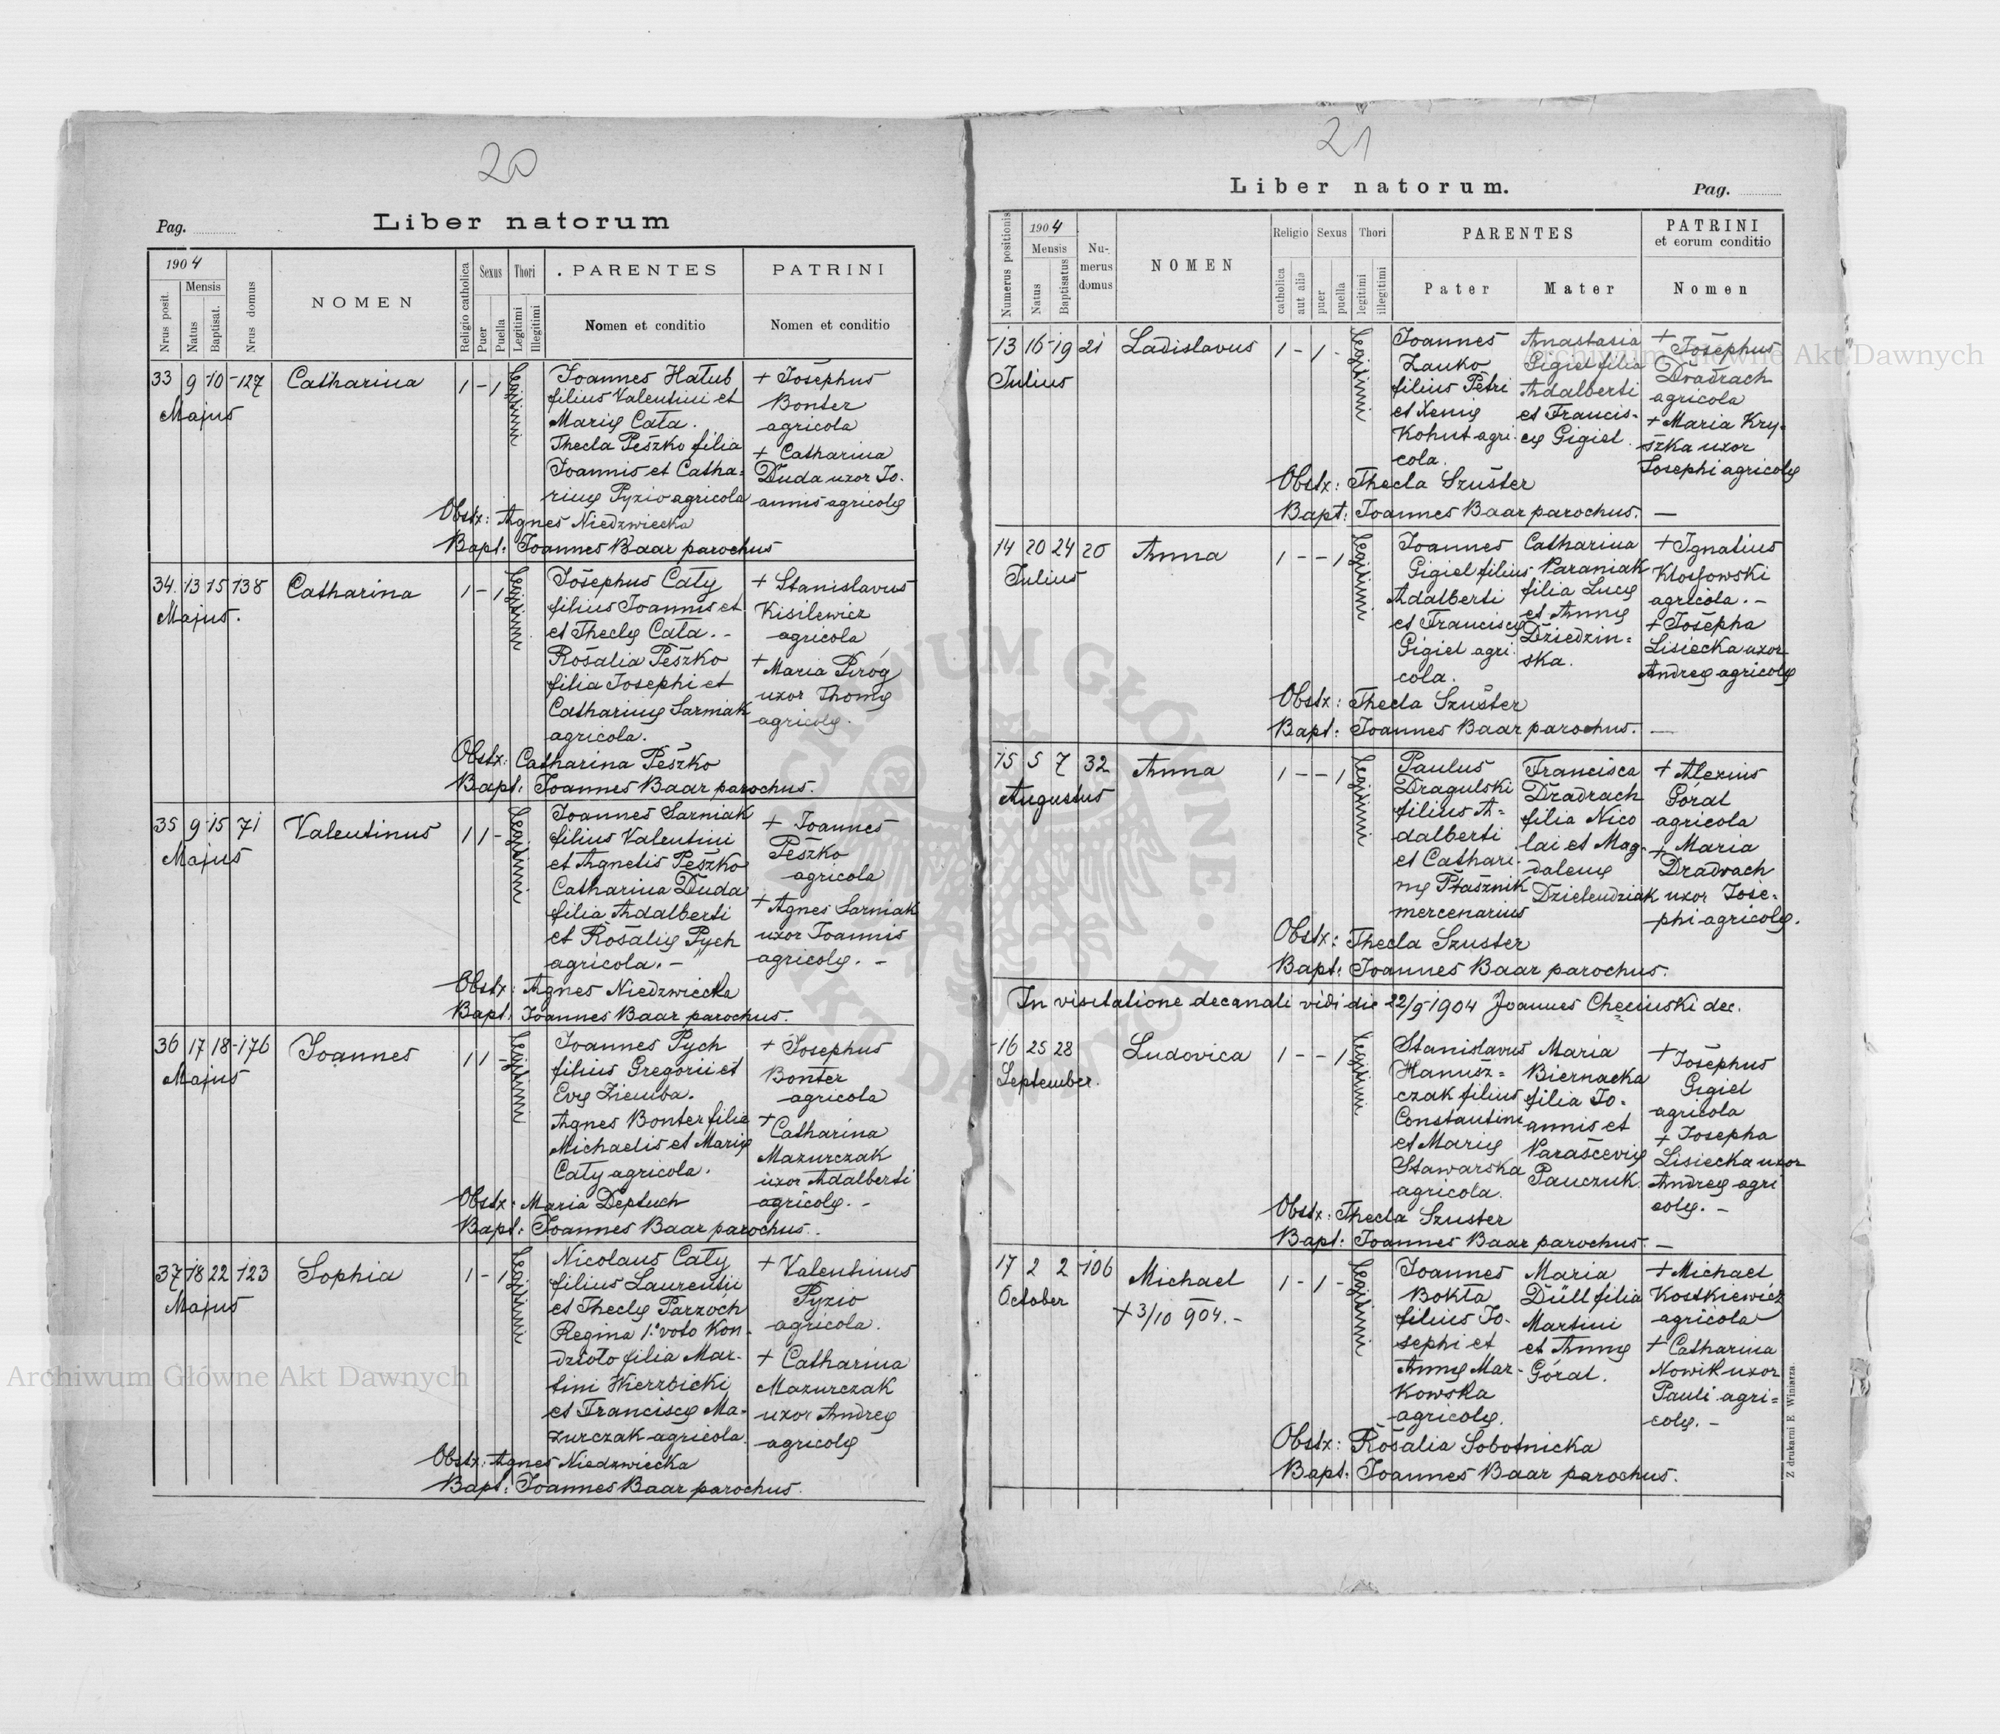 20
Pag.
Liber natorum
1904
Mensis
Nrus posit.
Natus
Baptisat.
Nrus domus
NOMEN
Religio catholica
Sexus
Puer
Puella
Thori
Legitimi
Illegitimi
PARENTES
Nomen et conditio
PATRINI
Nomen et conditio
33 9 10 127 Catharina 1 - 1 legitimi
Majus
Joannes Hałub
filius Valentini et
Marię Cała.
Thecla Peszko filia
Joannis et Catha=
rinę Pyzio agricola
+ Josephus
Bonter
agricola
+ Catharina
Duda uxor Jo-
annis agricolę
Obstx: Agnes Niedzwiecka
Bapt: Joannes Baar parochus
34. 13 15 138 Catharina 1 - 1 legitimi
Majus.
Josephus Cały
filius Joannis et
et Theclę Cała. -
Rosalia Peszko
filia Josephi et
Catharinę Sarniak
agricola.
+ Stanislavus
Kisilewicz
agricola
+ Maria Piróg
uxor Thomę
agricolę.
Obstx: Catharina Peszko
Bapt: Joannes Baar parochus.
35 9 15 71 Valentinus 1 1 - legitimi
Majus
Joannes Sarniak
filius Valentini
et Agnetis Peszko
Catharina Duda
filia Adalberti
et Rosalię Pych
agricola. -
+ Joannes
Peszko
agricola
+ Agnes Sarniak
uxor Joannis
agricolę. -
Obstx: Agnes Niedzwiecka
Bapt: Joannes Baar parochus.
36 17 18 176 Joannes 1 1 - legitimi
Majus
Joannes Pych
filius Gregorii et
Evę Ziemba.
Agnes Bonter filia
Michaelis et Marię
Cały agricola.
+ Josephus
Bonter
agricola
+ Catharina
Mazurczak
uxor Adalberti
agricolę. -
Obstx: Maria Deptuch
Bapt: Joannes Baar parochus.
37 18 22 123 Sophia 1 - 1 legitimi
Majus
Nicolaus Cały
filius Laurentii
et Theclę Parzoch
Regina 1º voto Kon-
dzioło filia Mar-
tini Wierzbicki
et Franciscę Ma-
zurczak agricola
+ Valentinus
Pyzio
agricola.
+ Catharina
Mazurczak
uxor Andreę
agricolę
Obstx: Agnes Niedzwiecka
Bapt: Joannes Baar parochus.
21
Liber natorum.
Pag.
Numerus positionis
1904
Mensis
Natus
Baptisatus
Nu-
merus
domus
NOMEN
Religio
catholica
aut alia
Sexus
puer
puella
Thori
legitimi
illegitimi
PARENTES
Pater
Mater
PATRINI
et eorum conditio
Nomen
13 16 19 21 Ladislavus 1 - 1 - legitimi
Julius
Joannes
Zauko
filius Petri
et Xenię
Kohut agri-
cola.
Anastasia
Gigiel filia
Adalberti
et Francis-
cę Gigiel.
+ Josephus
Dradrach
agricola
+ Maria Kry-
szka uxor
Josephi agricolę
Obstx: Thecla Szuster
Bapt: Joannes Baar parochus. —
14 20 24 20 Anna 1 - - 1 legitimi
Julius
Joannes
Gigiel filius
Adalberti
et Franciscę
Gigiel agri-
cola.
Catharina
Paraniak
filia Lucę
et Annę
Dziedzin=
ska.
+ Ignatius
Kłosowski
agricola. -
+ Josepha
Lisiecka uxor
Andreę agricolę
Obstx: Thecla Szuster
Bapt: Joannes Baar parochus. —
15 5 7 32 Anna 1 - - 1 legitimi
Augustus
Paulus
Dragulski
filius A-
dalberti
et Cathari-
nę Ptasznik
mercenarius
Francisca
Dradrach
filia Nico
lai et Mag-
dalenę
Dzielendziak
+ Alexius
Góral
agricola
+ Maria
Dradrach
uxor Jose-
phi agricolę.
Obstx: Thecla Szuster
Bapt: Joannes Baar parochus.
In visitatione decanali vidi die 22/9 1904 Joannes Chęciński dec.
16 25 28 Ludovica 1 - - 1 legitimi
September.
Stanislavus
Hanusz=
czak filius
Constantini
et Marię
Stawarska
agricola.
Maria
Biernacka
filia Jo-
annis et
Parascevię
Pauczuk.
+ Josephus
Gigiel
agricola
+ Josepha
Lisiecka uxor
Andreę agri
colę. -
Obstx: Thecla Szuster
Bapt: Joannes Baar parochus. —
17 2 2 106 Michael 1 - 1 - legitimi
October
+ 3/10 904. -
Joannes
Bokła
filius Jo-
sephi et
Annę Mar-
kowska
agricolę.
Maria
Düll filia
Martini
et Annę
Góral.
+ Michael
Kostkiewicz
agricola
+ Catharina
Nowik uxor
Pauli agri=
colę. -
Obstx: Rosalia Sobotnicka
Bapt: Joannes Baar parochus.
Z drukarni E. Winiarza
Archiwum Główne Akt Dawnych
Archiwum Główne Akt Dawnych
ARCHIWUM GŁÓWNE AKT DAWNYCH